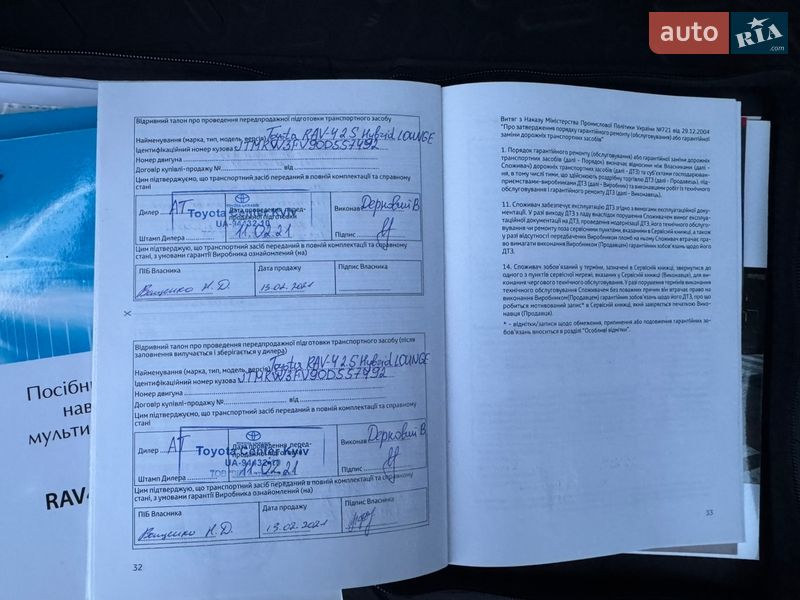 auto RIA.com
Відривний талон про проведення передпродажної підготовки транспортного засобу
Найменування (марка, тип, модель, версія) Toyota RAV-4 2.5 Hybrid LOUNGE
Ідентифікаційний номер кузова JTMRW3FV90D557492
Номер двигуна
Договір купівлі-продажу № від
Цим підтверджуємо, що транспортний засіб переданий в повній комплектації та справному
стані
Дилер АТ
Toyota Center Kyiv
Дата проведення перед-
продажної підготовки
11.02.21
Виконав Дерковий В
Штамп Дилера
Підпис
Цим підтверджуємо, що транспортний засіб переданий в повній комплектації та справному
стані, з умовами гарантії Виробника ознайомлений (на)
ПІБ Власника
Дата продажу
Підпис Власника
Ващенко Н. Д.
13.02.2021
Відривний талон про проведення передпродажної підготовки транспортного засобу (після
заповнення вилучається і зберігається у дилера)
Найменування (марка, тип, модель, версія) Toyota RAV-4 2.5 Hybrid LOUNGE
Ідентифікаційний номер кузова JTMRW3FV90D557492
Номер двигуна
Договір купівлі-продажу № від
Цим підтверджуємо, що транспортний засіб переданий в повній комплектації та справному
стані
Дилер АТ
Toyota Center Kyiv
Дата проведення перед-
продажної підготовки
11.02.21
Виконав Дерковий В
Штамп Дилера
Підпис
Цим підтверджуємо, що транспортний засіб переданий в повній комплектації та справному
стані, з умовами гарантії Виробника ознайомлений (на)
ПІБ Власника
Дата продажу
Підпис Власника
Ващенко Н. Д.
13.02.2021
32
Витяг з Наказу Міністерства Промислової Політики України №721 від 29.12.2004
"Про затвердження порядку гарантійного ремонту (обслуговування) або гарантійної
заміни дорожніх транспортних засобів"
1. Порядок гарантійного ремонту (обслуговування) або гарантійної заміни дорожніх
транспортних засобів (далі - Порядок) визначає відносини між Власниками (далі -
Споживач) дорожніх транспортних засобів (далі - ДТЗ) та суб'єктами господарюван-
ня, в тому числі тими, що здійснюють роздрібну торгівлю ДТЗ (далі - Продавець), під-
приємствами-виробниками ДТЗ (далі - Виробник) та виконавцями робіт із технічного
обслуговування і гарантійного ремонту ДТЗ (далі - Виконавець).
11. Споживач забезпечує експлуатацію ДТЗ згідно з вимогами експлуатаційної доку-
ментації. У разі виходу ДТЗ з ладу внаслідок порушення Споживачем вимог експлуа-
таційної документації на ДТЗ, проведення модернізації ДТЗ, його технічного обслуго-
вування чи ремонту поза сервісними пунктами, вказаними в Сервісній книжці, а також
у разі відсутності передбачених Виробником пломб на ньому Споживач втрачає пра-
во вимагати виконання Виробником (Продавцем) гарантійних зобов'язань щодо його
ДТЗ.
14. Споживач зобов'язаний у терміни, зазначені в Сервісній книжці, звернутися до
одного з пунктів сервісу, вказаних в Сервісній книжці (Виконавця), для виконання
чергового технічного обслуговування. У разі порушення термінів виконання
технічного обслуговування Споживачем без поважних причин він втрачає право на
виконання Виробником(Продавцем) гарантійних зобов'язань щодо його ДТЗ, про що
робиться мотивований запис* в Сервісній книжці, який завіряється печаткою Викона-
вця (Продавця).
* - відмітки/записи щодо обмеження, припинення або подовження гарантійних зо-
бов'язань вносяться в розділ "Особливі відмітки".
33
RAV